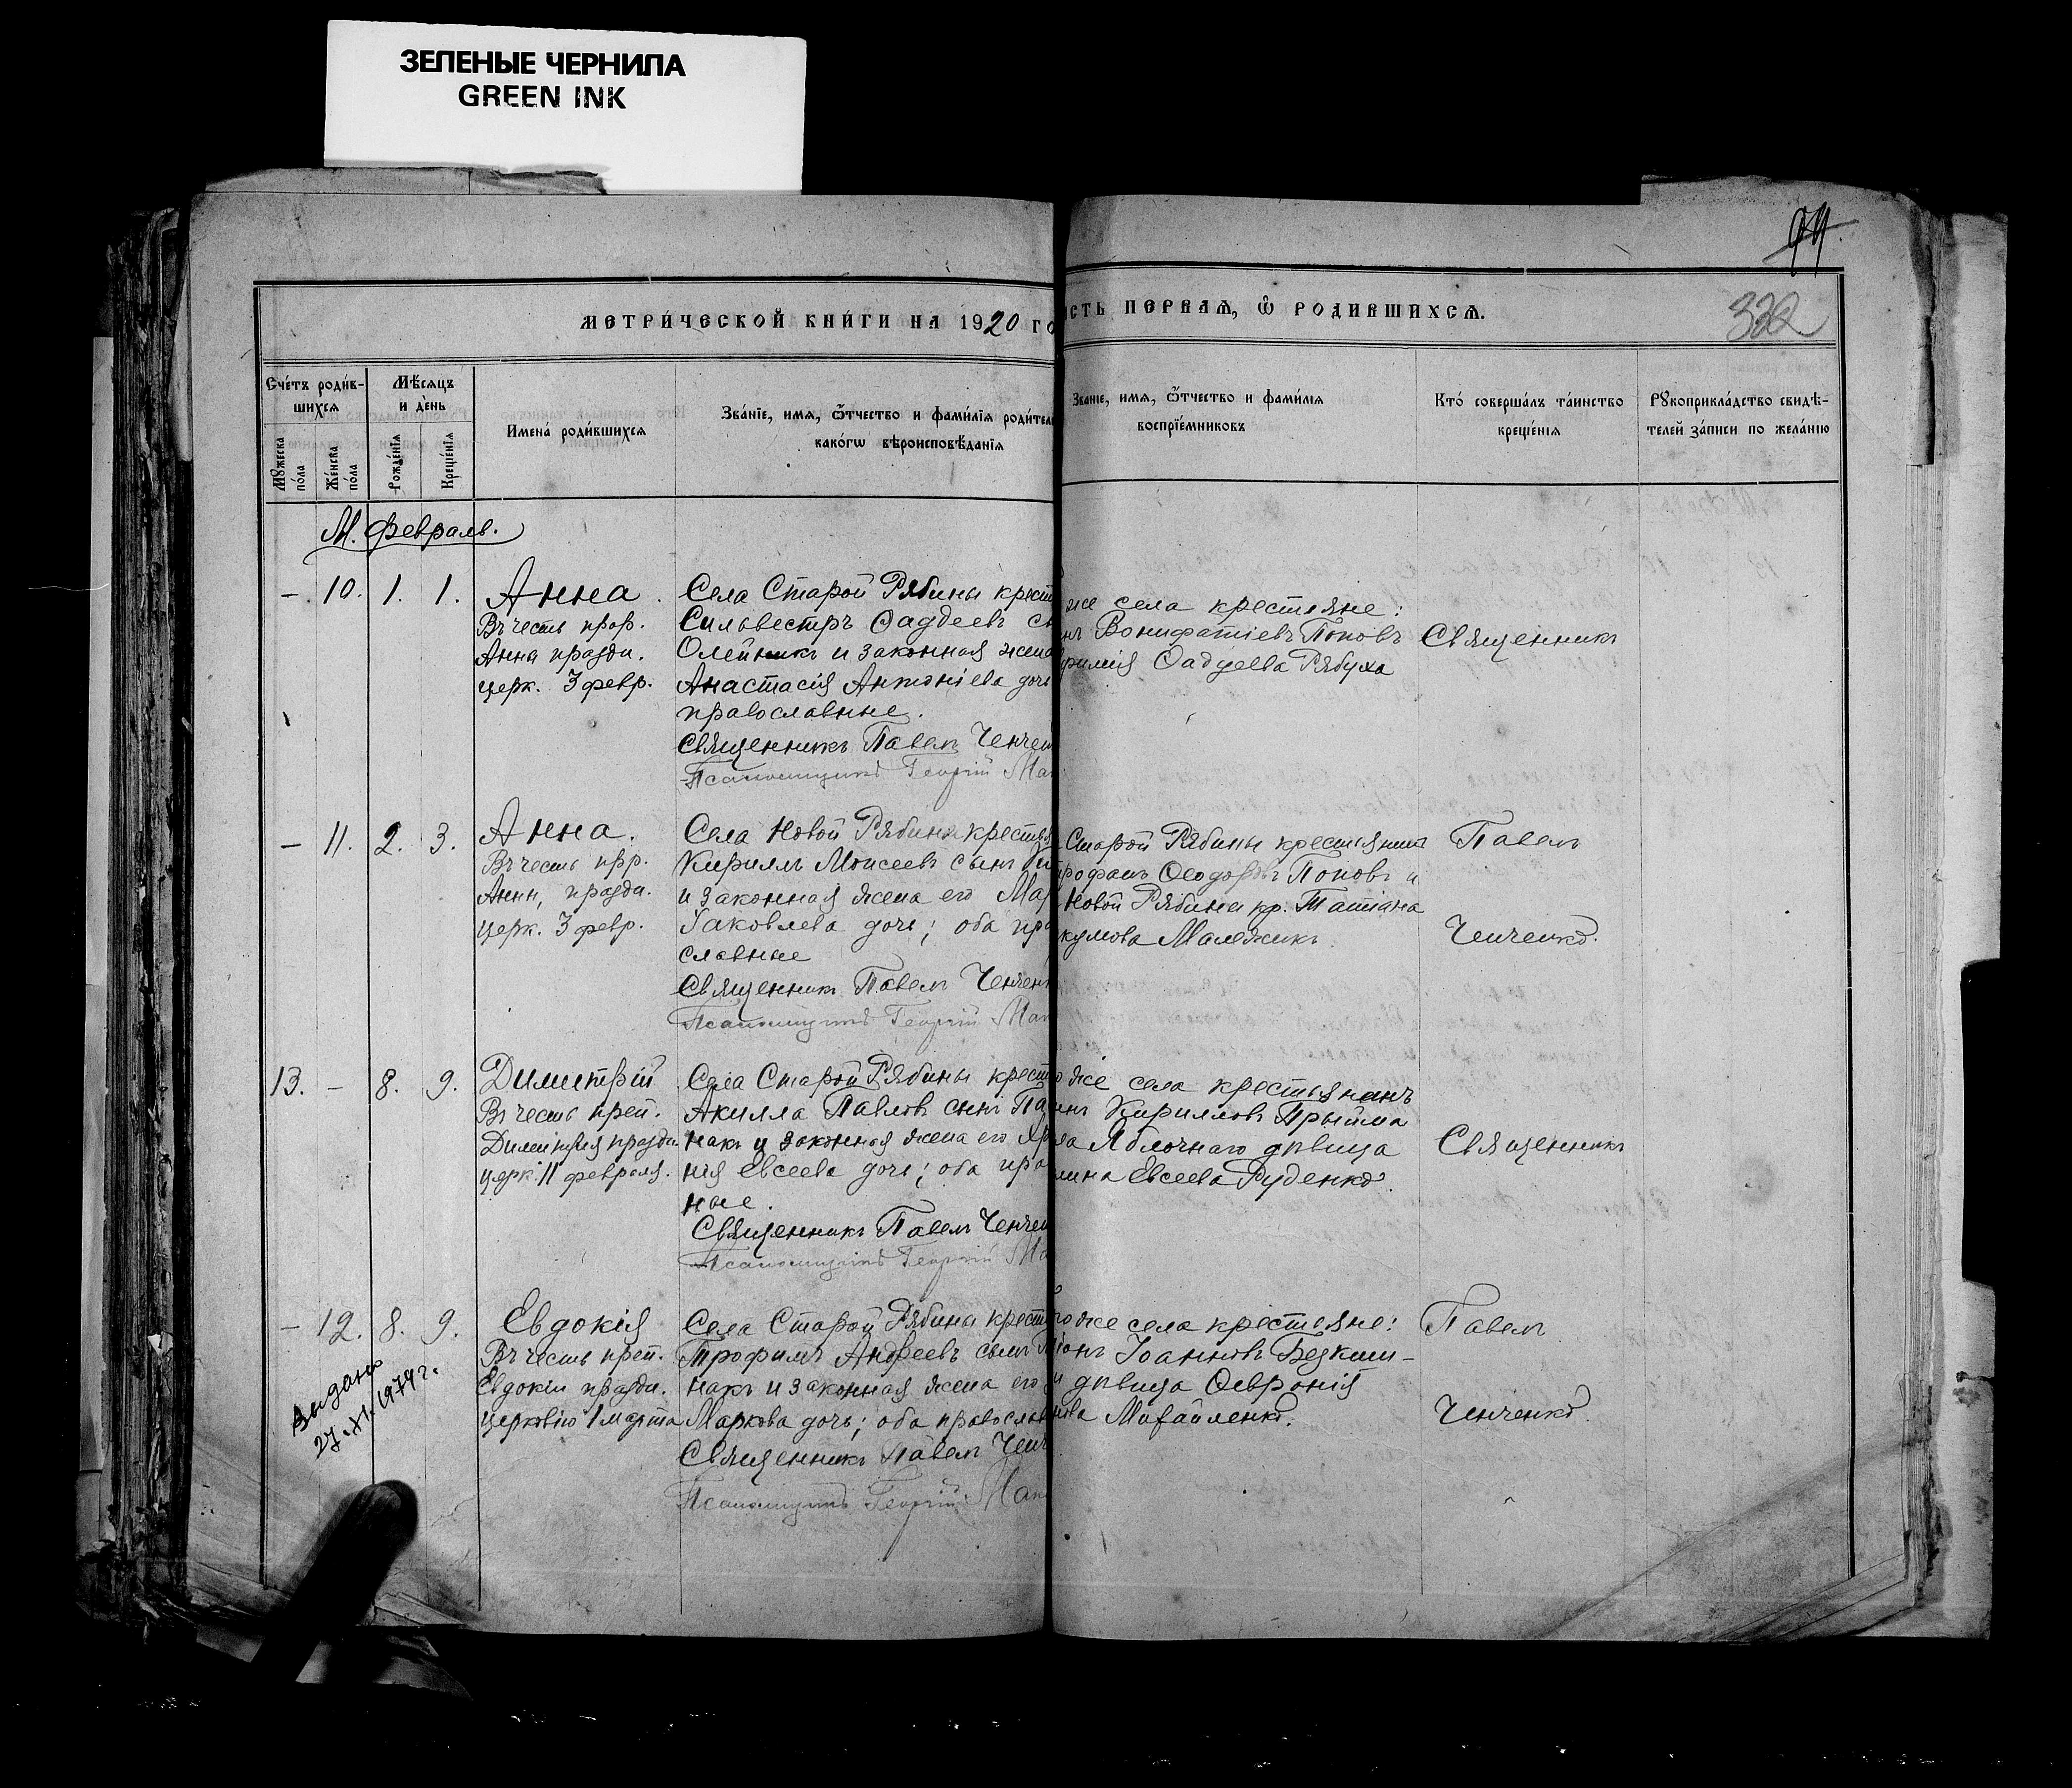 ЗЕЛЕНЫЕ ЧЕРНИЛА
GREEN INK
94.
332
МЕТРИ́ЧЕСКОЙ КНИ́ГИ НА 1920 ГО
СТЬ ПЕРВАѦ, Ѽ РОДИВШИХСѦ.
Сче́тъ роди́в-
шихсѧ
Мꙋжеска по́ла
Же́нска по́ла
Мѣ́сѧцъ
и де́нь
Рожде́нїѧ
Креще́нїѧ
Имена̀ роди́вшихсѧ
Зва́нїе, имѧ, ѻ҆́тчество и фами́лїѧ роди́тел
како́гѡ вѣроисповѣ́данїѧ
Зва́нїе, имѧ, ѻ҆́тчество и фами́лїѧ
воспрїе́мниковъ
Кто̀ соверша́лъ та́инство
креще́нїѧ
Рꙋкоприкла́дство свидѣ́-
телей за́писи по жела́нїю
М. Февраль.
– 10. 1. 1.
Анна.
Въ честь прор.
Анны праздн.
церк. 3 февр.
Села Старой Рябины крест
Сильвестръ Ѳаддеевъ сы
Олейникъ и законная жена
Анастасія Антоніева дочь
православные.
Священникъ Павелъ Ченчен
Псаломщикъ Георгій Ма
же села крестьяне:
нъ Вонифатіевъ Поповъ
фимія Ѳаддеева Рябуха
Священникъ
– 11. 2. 3.
Анна.
Въ честь прр.
Анны, праздн.
церк. 3 февр.
Села Новой Рябины крестья
Кириллъ Моисеевъ сынъ
и законная жена его Мар
Іаковлева дочь; оба пра
славные
Священникъ Павелъ Ченчен
Псаломщикъ Георгій Ма
Старой Рябины крестьянинъ
трофанъ Ѳеодоровъ Поповъ и
Новой Рябины кр. Татіана
кумова Малежикъ.
Павелъ
Ченченко.
13. – 8. 9.
Димитрій
Въ честь преп.
Димитрія праздн.
церк. 11 февраля.
Села Старой Рябины крест
Акилла Павловъ сынъ Па
накъ и законная жена его
нія Евсеева дочь; оба пра
ные.
Священникъ Павелъ Ченчен
Псаломщикъ Георгій Ма
о же села крестьянинъ
Кирилловъ Прыйма
ла Яблочнаго дѣвица
лина Евсеева Руденко.
Священникъ
– 12. 8. 9.
Евдокія
Въ честь преп.
Евдокіи праздн.
церковію 1 марта
Села Старой Рябины крест
Трофимъ Андреевъ сынъ
накъ и законная жена его
Маркова дочь; оба православ
Священникъ Павелъ Ченч
Псаломщикъ Георгій Ма
го же села крестьяне:
іонъ Іоанновъ Безкиш-
и дѣвица Ѳевронія
Михайленко.
Павелъ
Ченченко.
Выдано
27.XI.1979 г.